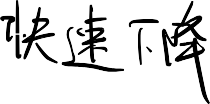 快速下降